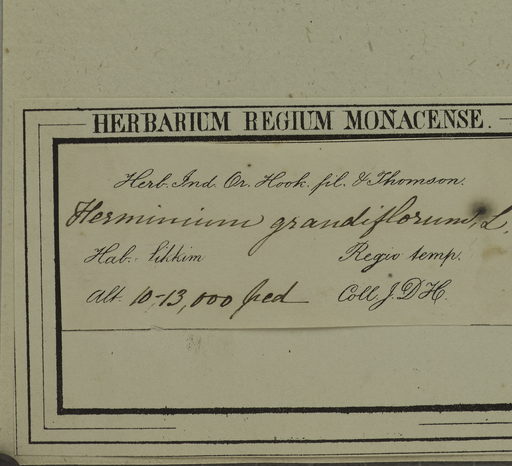 HERBARIUM REGIUM MONACENSE.
Herb. Ind. Or. Hook. fil. & Thomson.
Herminium grandiflorum, L.
Hab. Sikkim Regio temp.
Alt. 10-13,000 ped Coll. J. D. H.